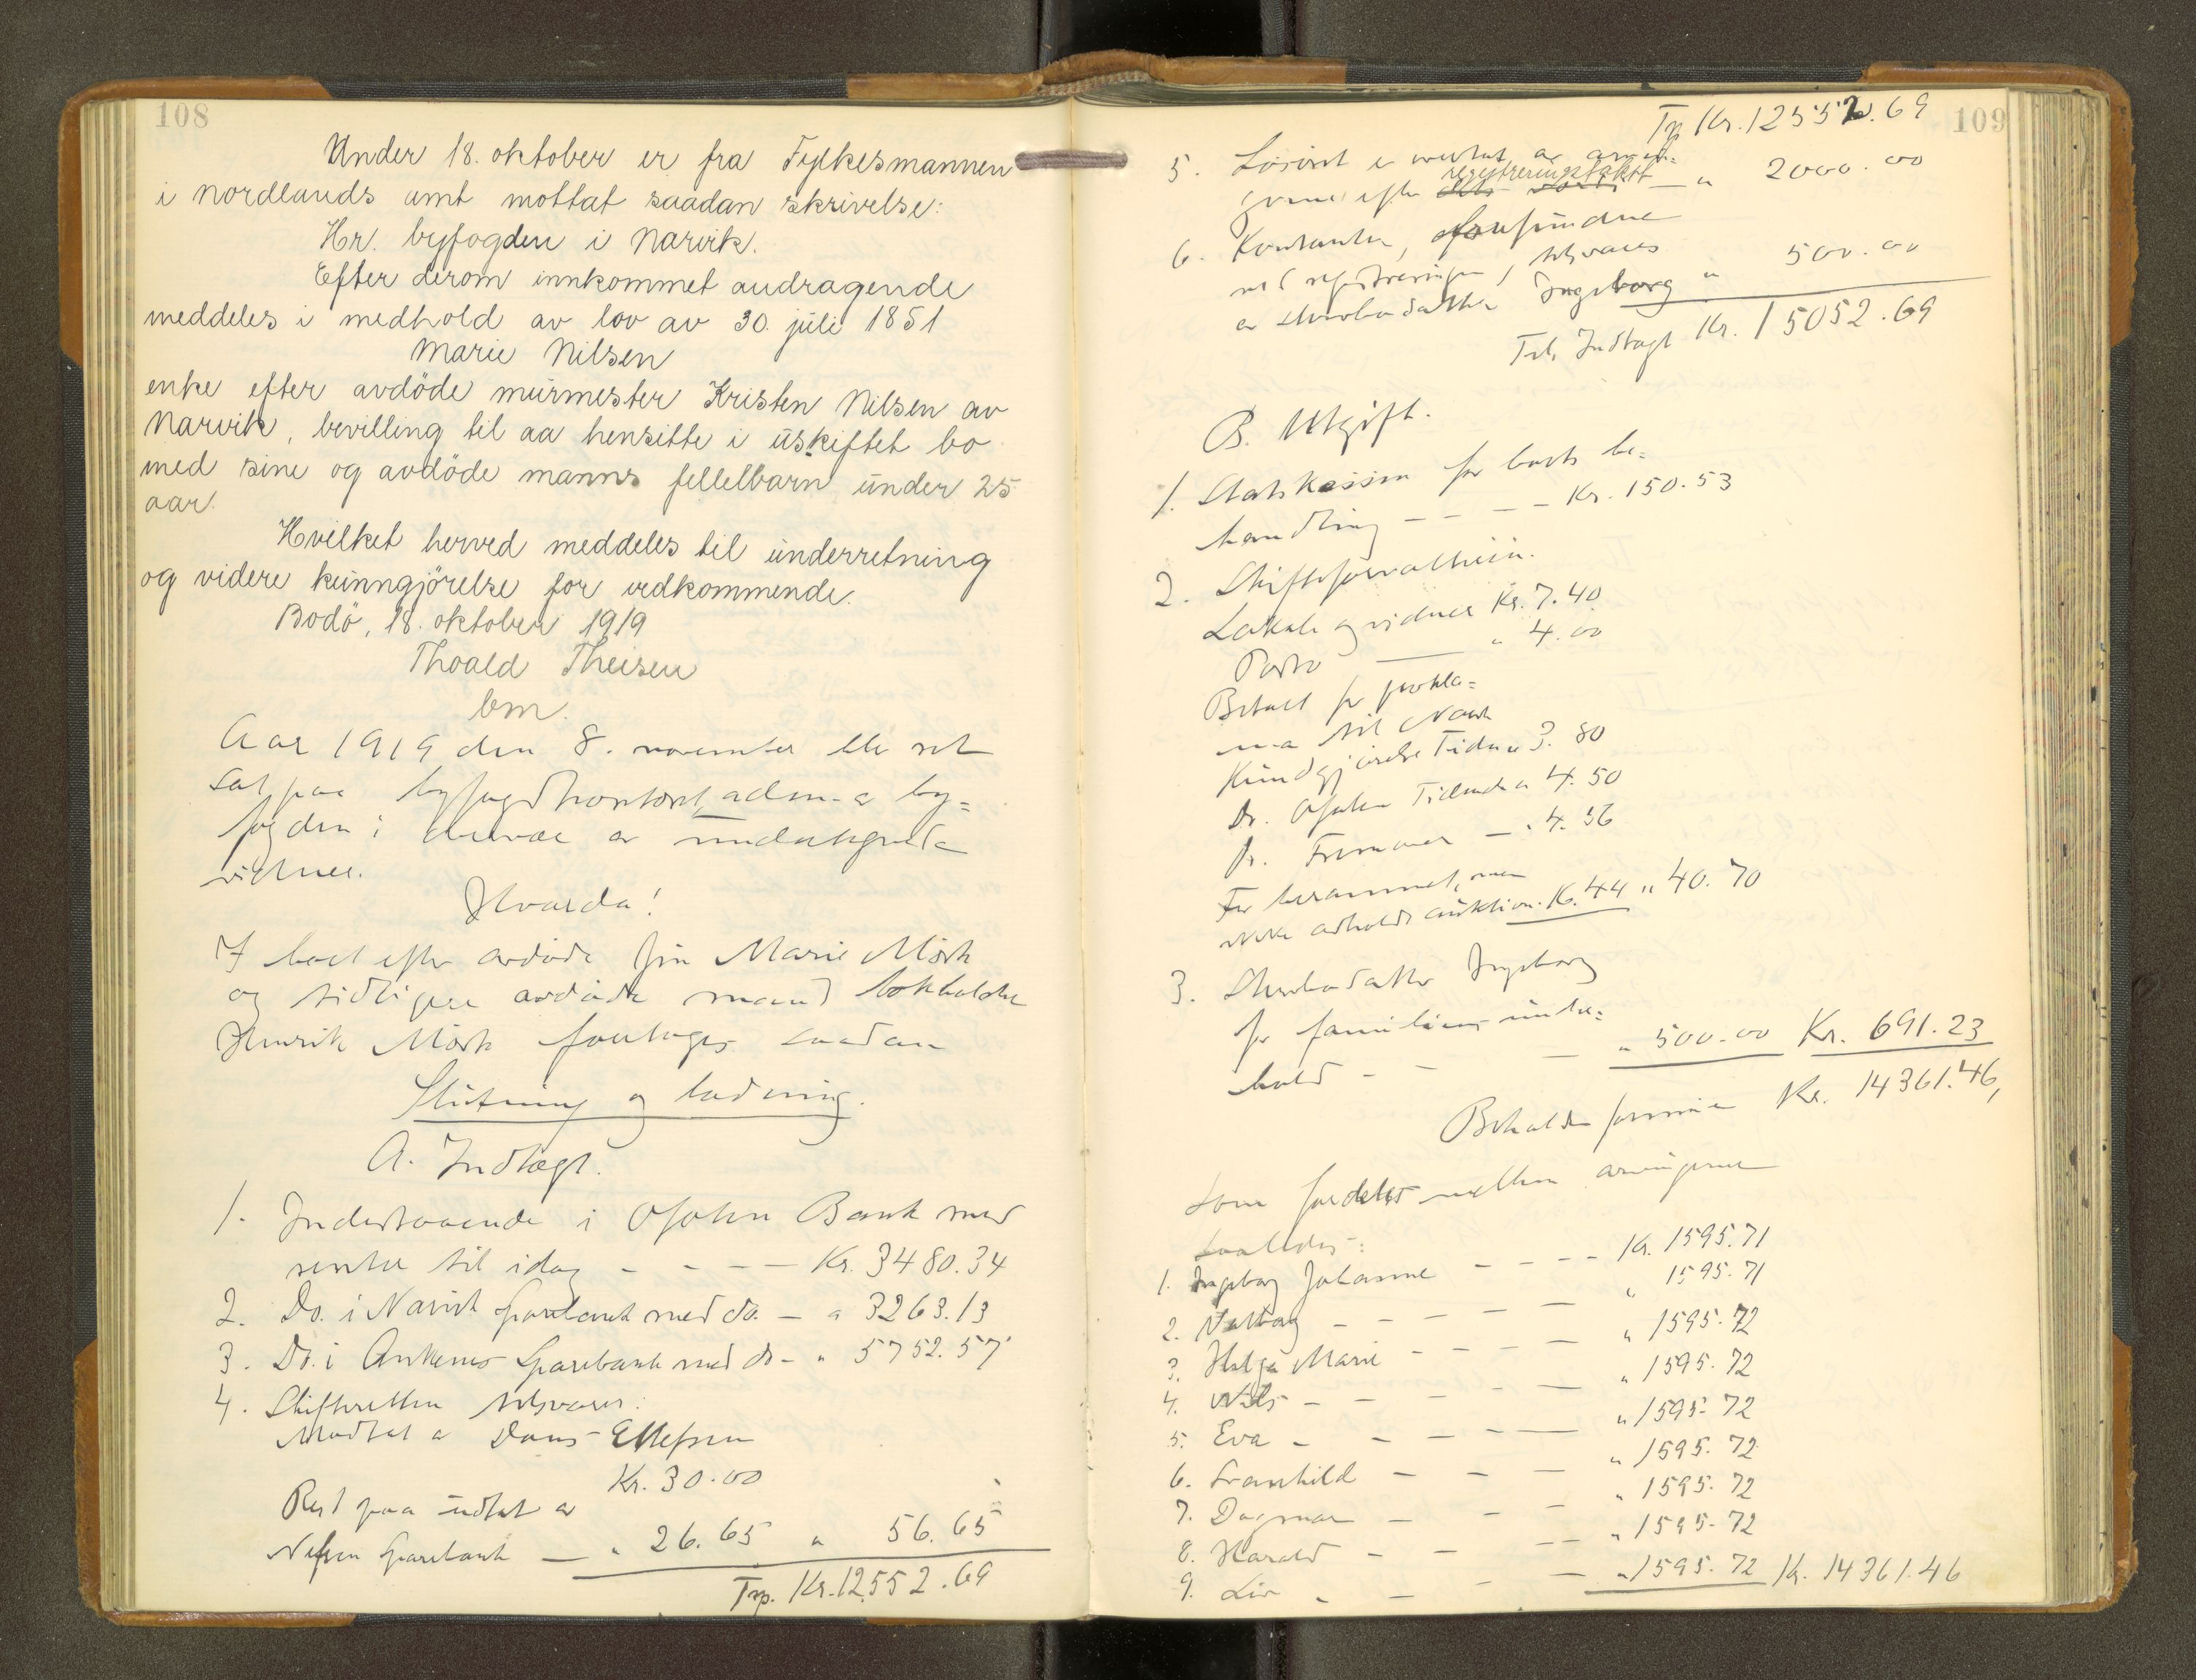 108
Under 18. oktober er fra Fylkesmannen
i nordlands amt mottat saadan skrivelse:
Hr. byfogden i Narvik.
Efter derom innkommet andragende
meddeles i medhold av lov av 30. juli 1851
Marie Nilsen
enke efter avdöde murmester Kristen Nilsen av
Narvik, bevilling til aa hensitte i uskiftet bo
med sine og avdöde manns fellelbarn under 25
aar.
Hvilket herved meddeles til underretning
og videre kunngjörelse for vedkommende.
Bodö, 18. oktober 1919
Thoald Theisen
bm.
Aar 1919 den 8. november ble ret
sat paa byfogdkontoret, adm. a by=
fogden i nærvær av undertegnede
vidner.
Hvorda!
I boet efter avdöde fru Marie Mörk
og tidligere avdöde mand bokholder
Henrik Mörk foretages saadan
Slutning og lodning.
A. Indtægt.
1. Indestaaende i Ofoten Bank med
renter til idag - - - - Kr. 3480.34
2. Do. i Narvik Sparebank med do. - " 3263.13
3. Do. i Ankenes Sparebank med do - " 5752.57
4. Skifteretten tilsvarer:
Modtat a Dons Ellefsen
Kr. 30.00
Rest paa uttat av
Sparebank — " 26.65 " 56.65
Trp. Kr. 12552.69
109
Trp Kr. 12552.69
5. Lösöret er utlat av arvin=
gerne efter registreringstakst — " 2000.00
6. Kontanter, forefundne
ved registreringen, tilsvares
av stervbodatter Ingeborg " 500.00
Tils. Indtægt Kr. 15052.69
B. Utgift.
1. Statskassen for boets be=
handling - - - - Kr. 150.53
2. Skifteforvalteren.
Lokale og vidner Kr. 7.40
Porto — " 4.00
Betalt for prokla=
ma til Norsk
Kundgjörelse Tidende 3.80
Do. Ofoten Tidende " 4.50
Do. Fremover — " 4.56
For berammet, men
ikke avholdt auktion. K. 44 " 40.70
3. Stervbodatter Ingeborg
for familiens under=
hold - - — " 500.00 Kr. 691.23
Beholden formue Kr. 14361.46,
som fordeles mellem arvingerne
saaledes:
1. Ingeborg Johanne - - - - Kr. 1595.71
2. Valborg - - - - — " 1595.71
3. Helga Marie - - - — " 1595.72
4. Nils - - - - — " 1595.72
5. Eva - - - - — " 1595.72
6. Svanhild - - — " 1595.72
7. Dagmar - - - " 1595.72
8. Harald - - — " 1595.72
9. Liv - - - — " 1595.72 Kr. 14361.46